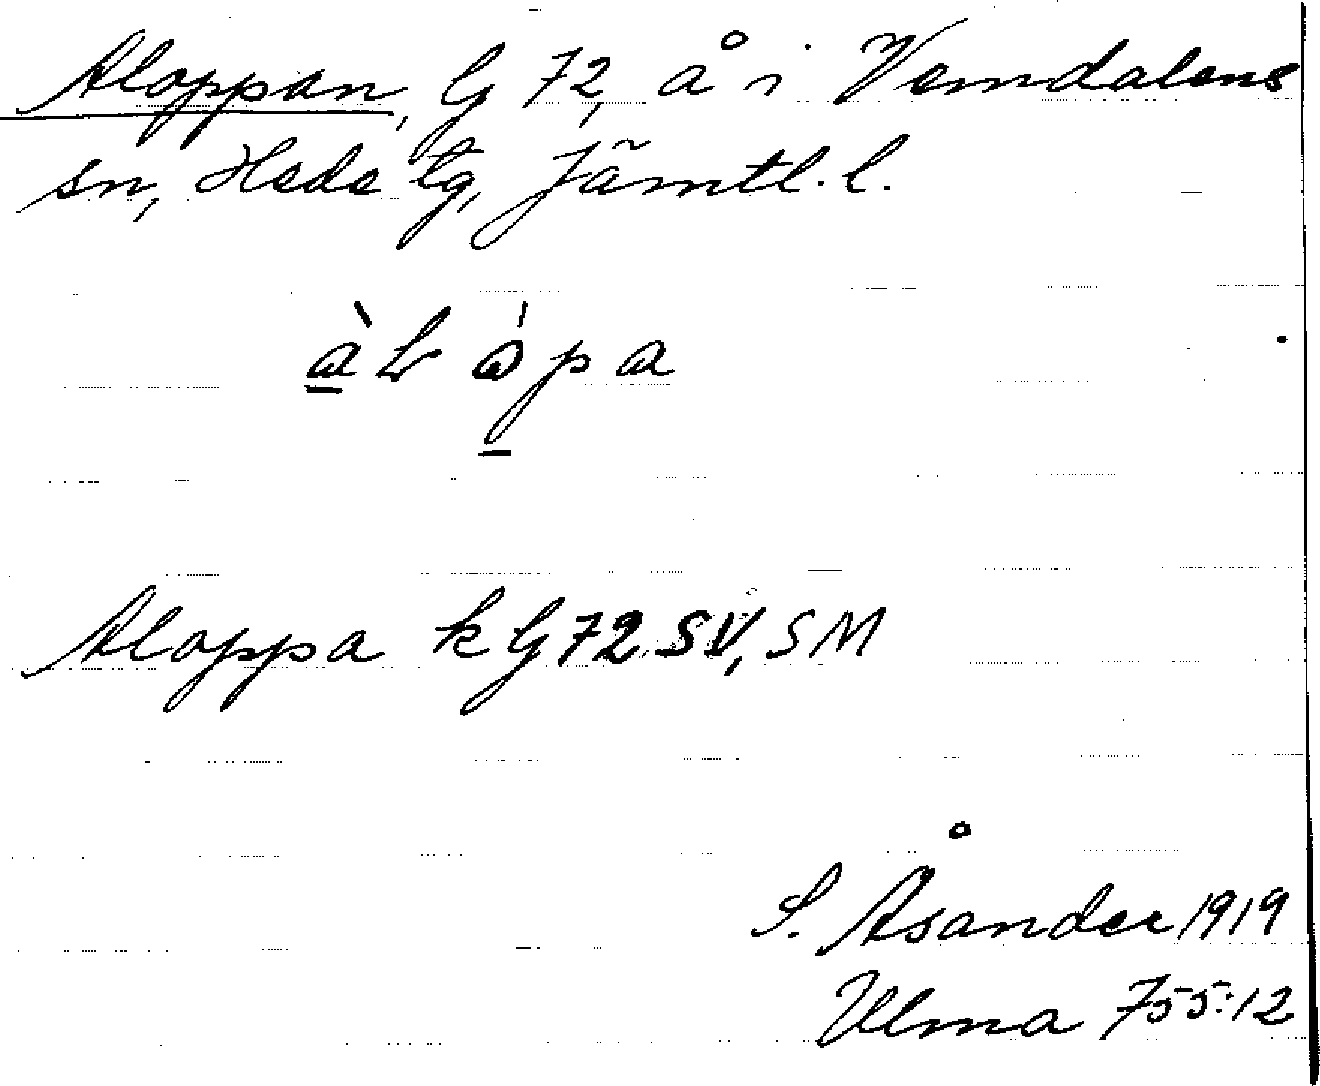 Aloppan, G 72, å i Vemdalens
sn, Hede tg, Jämtl. l.
Aloppa k G 72 SV, SM
S. Åsander 1919
Ulma 755:12